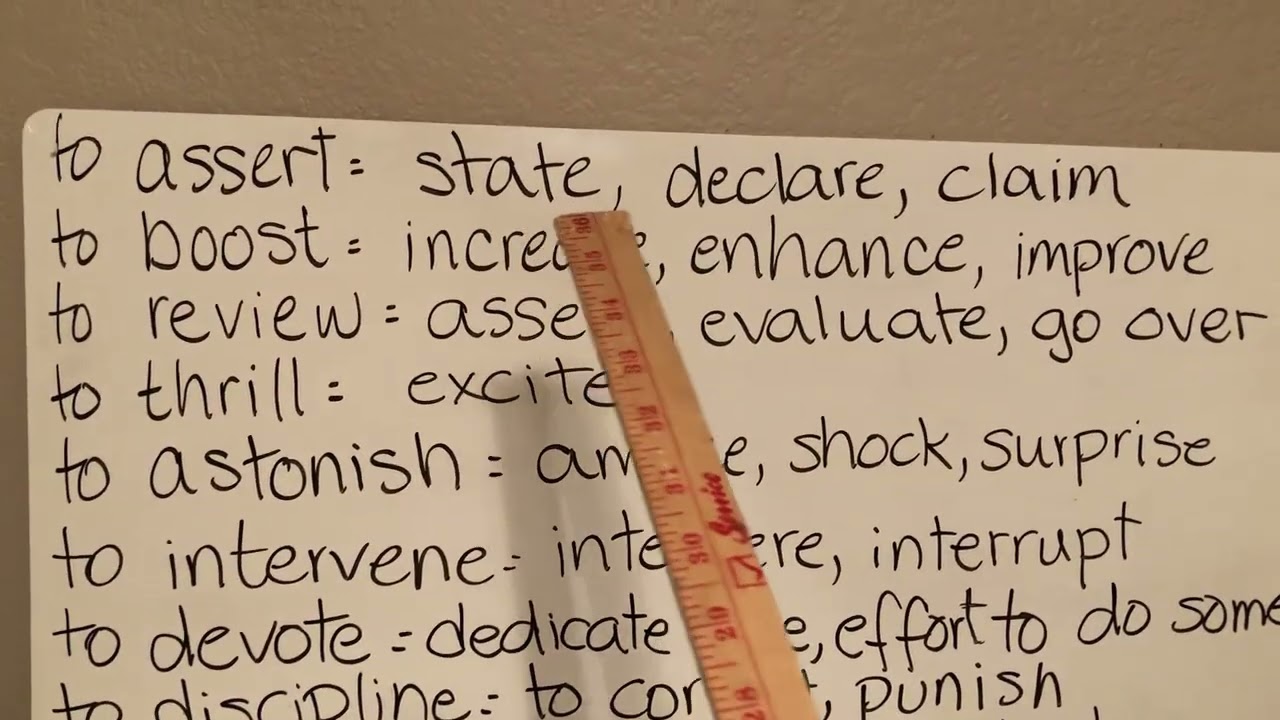 to assert = state, declare, claim
to boost = incre , enhance, improve
to review = asse , evaluate, go over
to thrill = excite
to astonish = am e, shock, surprise
to intervene = inte ere, interrupt
to devote = dedicate e, effort to do some
to discipline = to cor , punish
36
35
34
33
32
31
30
29
28
Service